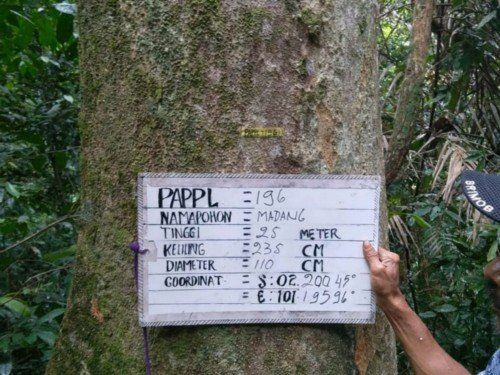 PAPPL = 196
NAMAPOHON = MADANG
TINGGI = 25 METER
KELILING = 235 CM
DIAMETER = 110 CM
COORDINAT = S:02.20045°
= E:101.19596°
BRIMOB